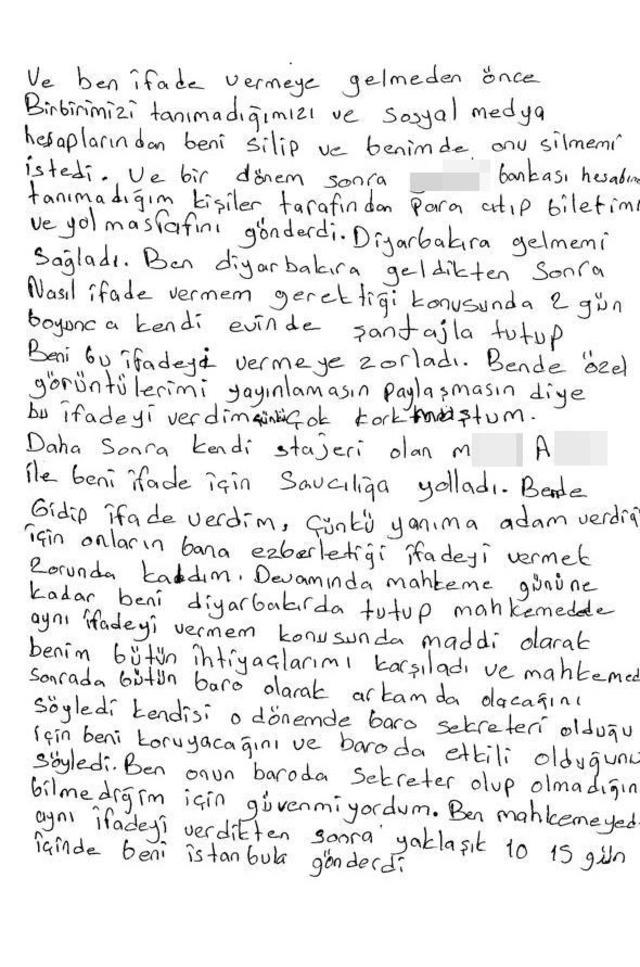 Ve ben ifade vermeye gelmeden önce
Birbirimizi tanımadığımızı ve sosyal medya
hesaplarından beni silip ve benimde onu silmemi
istedi. Ve bir dönem sonra bankası hesabın
tanımadığım kişiler tarafından para atıp biletimi
ve yol masrafını gönderdi. Diyarbakıra gelmemi
Sağladı. Ben diyarbakıra geldikten Sonra
Nasıl ifade vermem gerektiği konusunda 2 gün
boyunca kendi evinde şantajla tutup
Beni bu ifadeyi vermeye zorladı. Bende özel
görüntülerimi yayınlamasın paylaşmasın diye
bu ifadeyi verdim çünkü çok korkmuştum.
Daha Sonra kendi stajeri olan m A
ile beni ifade için Savcılığa yolladı. Bende
Gidip ifade verdim, Çünkü yanıma adam verdiğ
için onların bana ezberlettiği ifadeyi vermek
Zorunda kaldım. Devamında mahkeme gününe
kadar beni diyarbakırda tutup mahkemede
aynı ifadeyi vermem konusunda maddi olarak
benim bütün ihtiyaçlarımı karşıladı ve mahkemed
sonrada bütün baro olarak arkamda olacağını
Söyledi kendisi o dönemde baro sekreteri olduğu
için beni koruyacağını ve baroda etkili olduğunu
söyledi. Ben onun baroda sekreter olup olmadığın
bilmediğim için güvenmiyordum. Ben mahkemeyed
aynı ifadeyi verdikten sonra yaklaşık 10 15 gün
içinde beni istanbula gönderdi